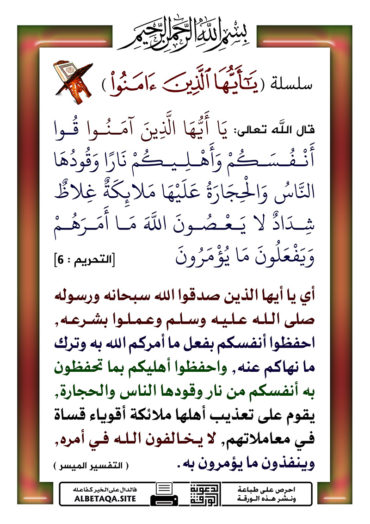 بسم الله الرحمن الرحيم
سلسلة (يَـٰٓأَيُّهَا ٱلَّذِينَ ءَامَنُواْ)
قال الله تعالى: يَا أَيُّهَا الَّذِينَ آمَنُوا قُوا
أَنْفُسَكُمْ وَأَهْلِيكُمْ نَارًا وَقُودُهَا
النَّاسُ وَالْحِجَارَةُ عَلَيْهَا مَلائِكَةٌ غِلاظٌ
شِدَادٌ لا يَعْصُونَ اللَّهَ مَا أَمَرَهُمْ
وَيَفْعَلُونَ مَا يُؤْمَرُونَ [التحريم : 6]
أي يا أيها الذين صدقوا الله سبحانه ورسوله
صلى الله عليه وسلم وعملوا بشرعه,
احفظوا أنفسكم بفعل ما أمركم الله به وترك
ما نهاكم عنه, واحفظوا أهليكم بما تحفظون
به أنفسكم من نار وقودها الناس والحجارة,
يقوم على تعذيب أهلها ملائكة أقوياء قساة
في معاملاتهم, لا يخالفون الله في أمره,
وينفذون ما يؤمرون به. (التفسير الميسر)
احرص على طباعة
ونشر هذه الورقة
فالدال على الخير كفاعله
ALBETAQA.SITE